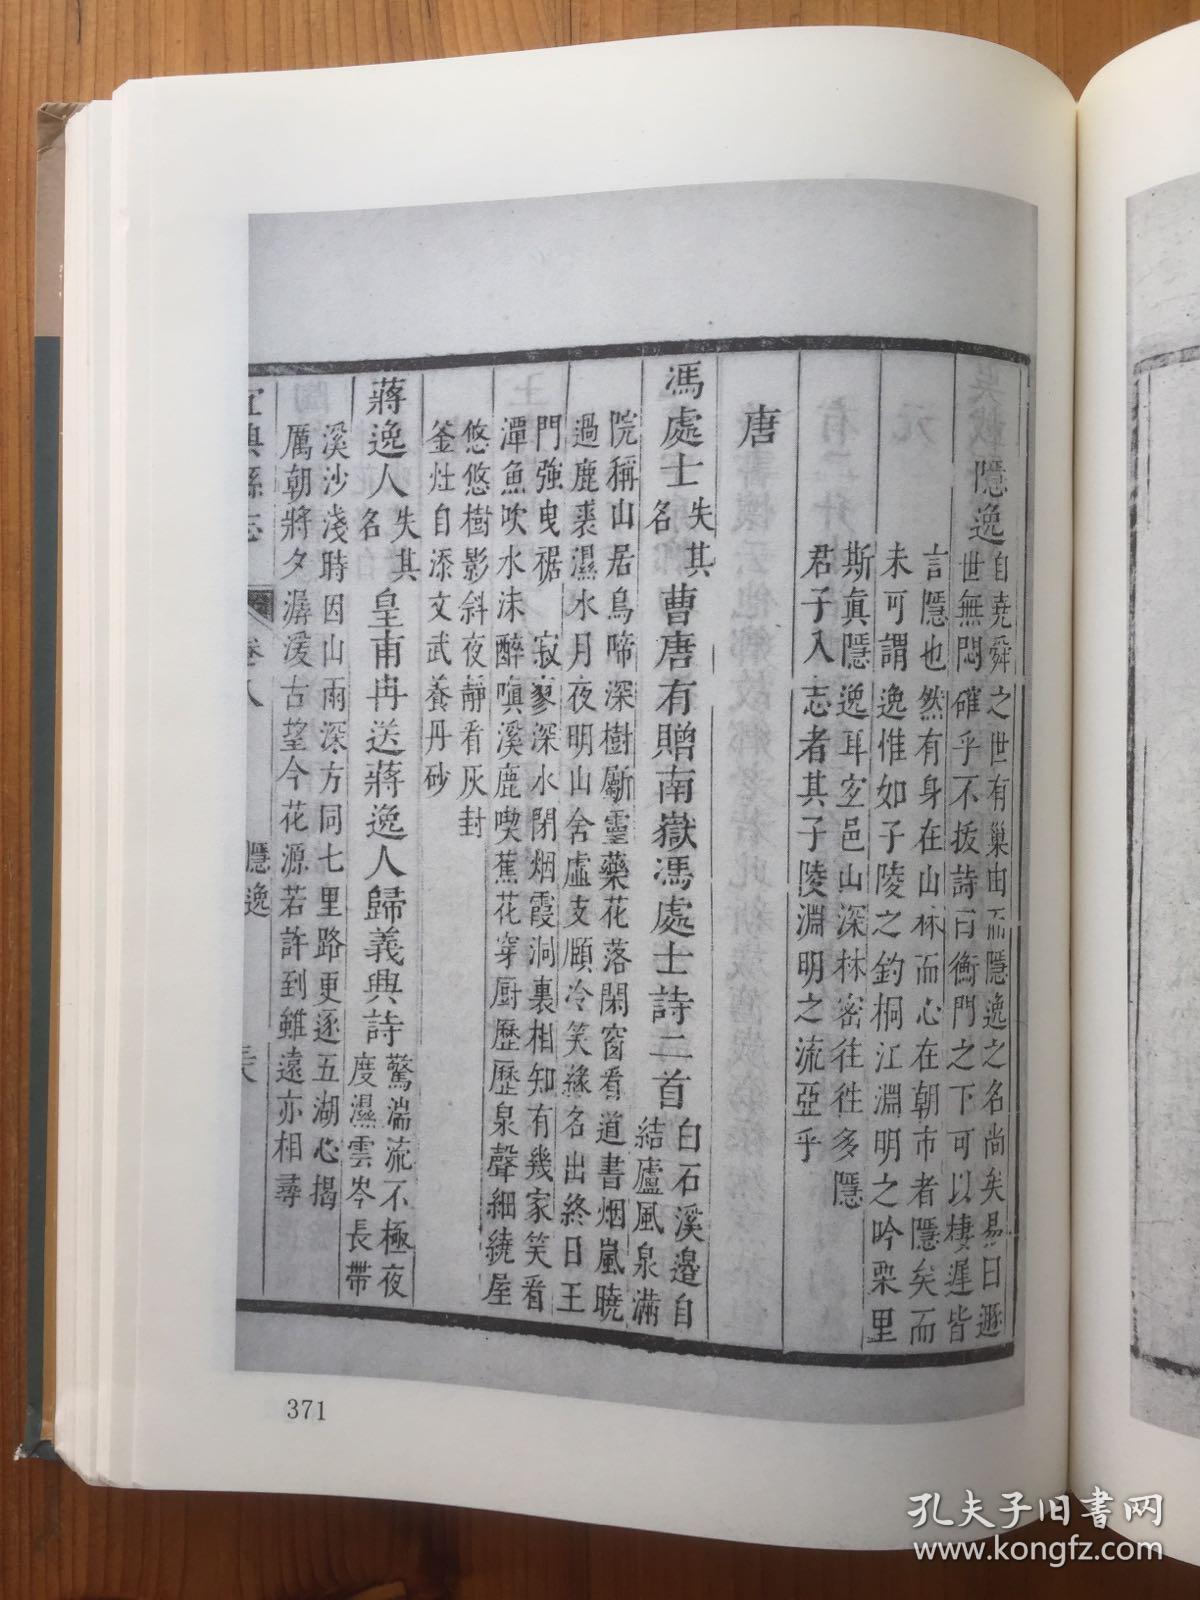 隱逸自堯舜之世有巢由而隱逸之名尚矣易曰遯
世無悶確乎不拔詩曰衡門之下可以棲遲皆
言隱也然有身在山林而心在朝市者隱矣而
未可謂逸惟如子陵之釣桐江淵明之吟栗里
斯眞隱逸耳宐邑山深林密往往多隱
君子入志者其子陵淵明之流亞乎
唐
馮處士失其名曹唐有贈南嶽馮處士詩二首白石溪邉自
結廬風泉滿
院稱山居鳥啼深樹斸靈藥花落閑窗看道書烟嵐曉
過鹿裘濕水月夜明山舍虛支頤冷笑緣名出終日王
門強曳裾 寂寥深水閉烟霞洞裏相知有幾家笑看
潭魚吹水沫醉嗔溪鹿喫蕉花穿厨歷歷泉聲細繞屋
悠悠樹影斜夜靜看灰封
釜灶自添文武養丹砂
蔣逸人失其名皇甫冉送蔣逸人歸義興詩驚湍流不極夜
度濕雲岑長帶
溪沙淺時因山雨深方同七里路更逐五湖心揭
厲朝將夕潺湲古望今花源若許到雖遠亦相尋
宜興縣志 卷八 隱逸
371
孔夫子旧书网
www.kongfz.com